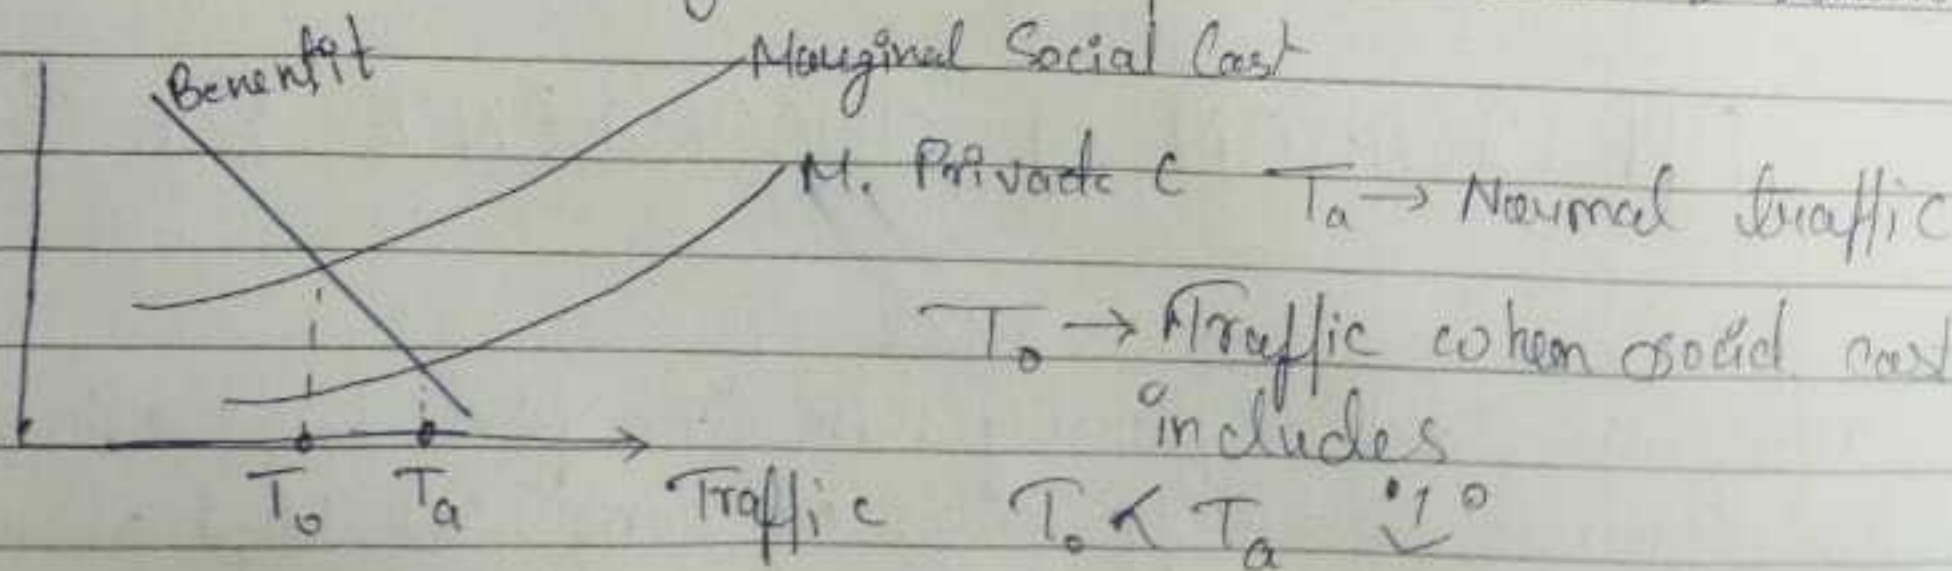 Benenfit
Marginal Social Cost
M. Private C
Ta → Normal traffic
To → Traffic when social cost
includes
To Ta
Traffic
To < Ta